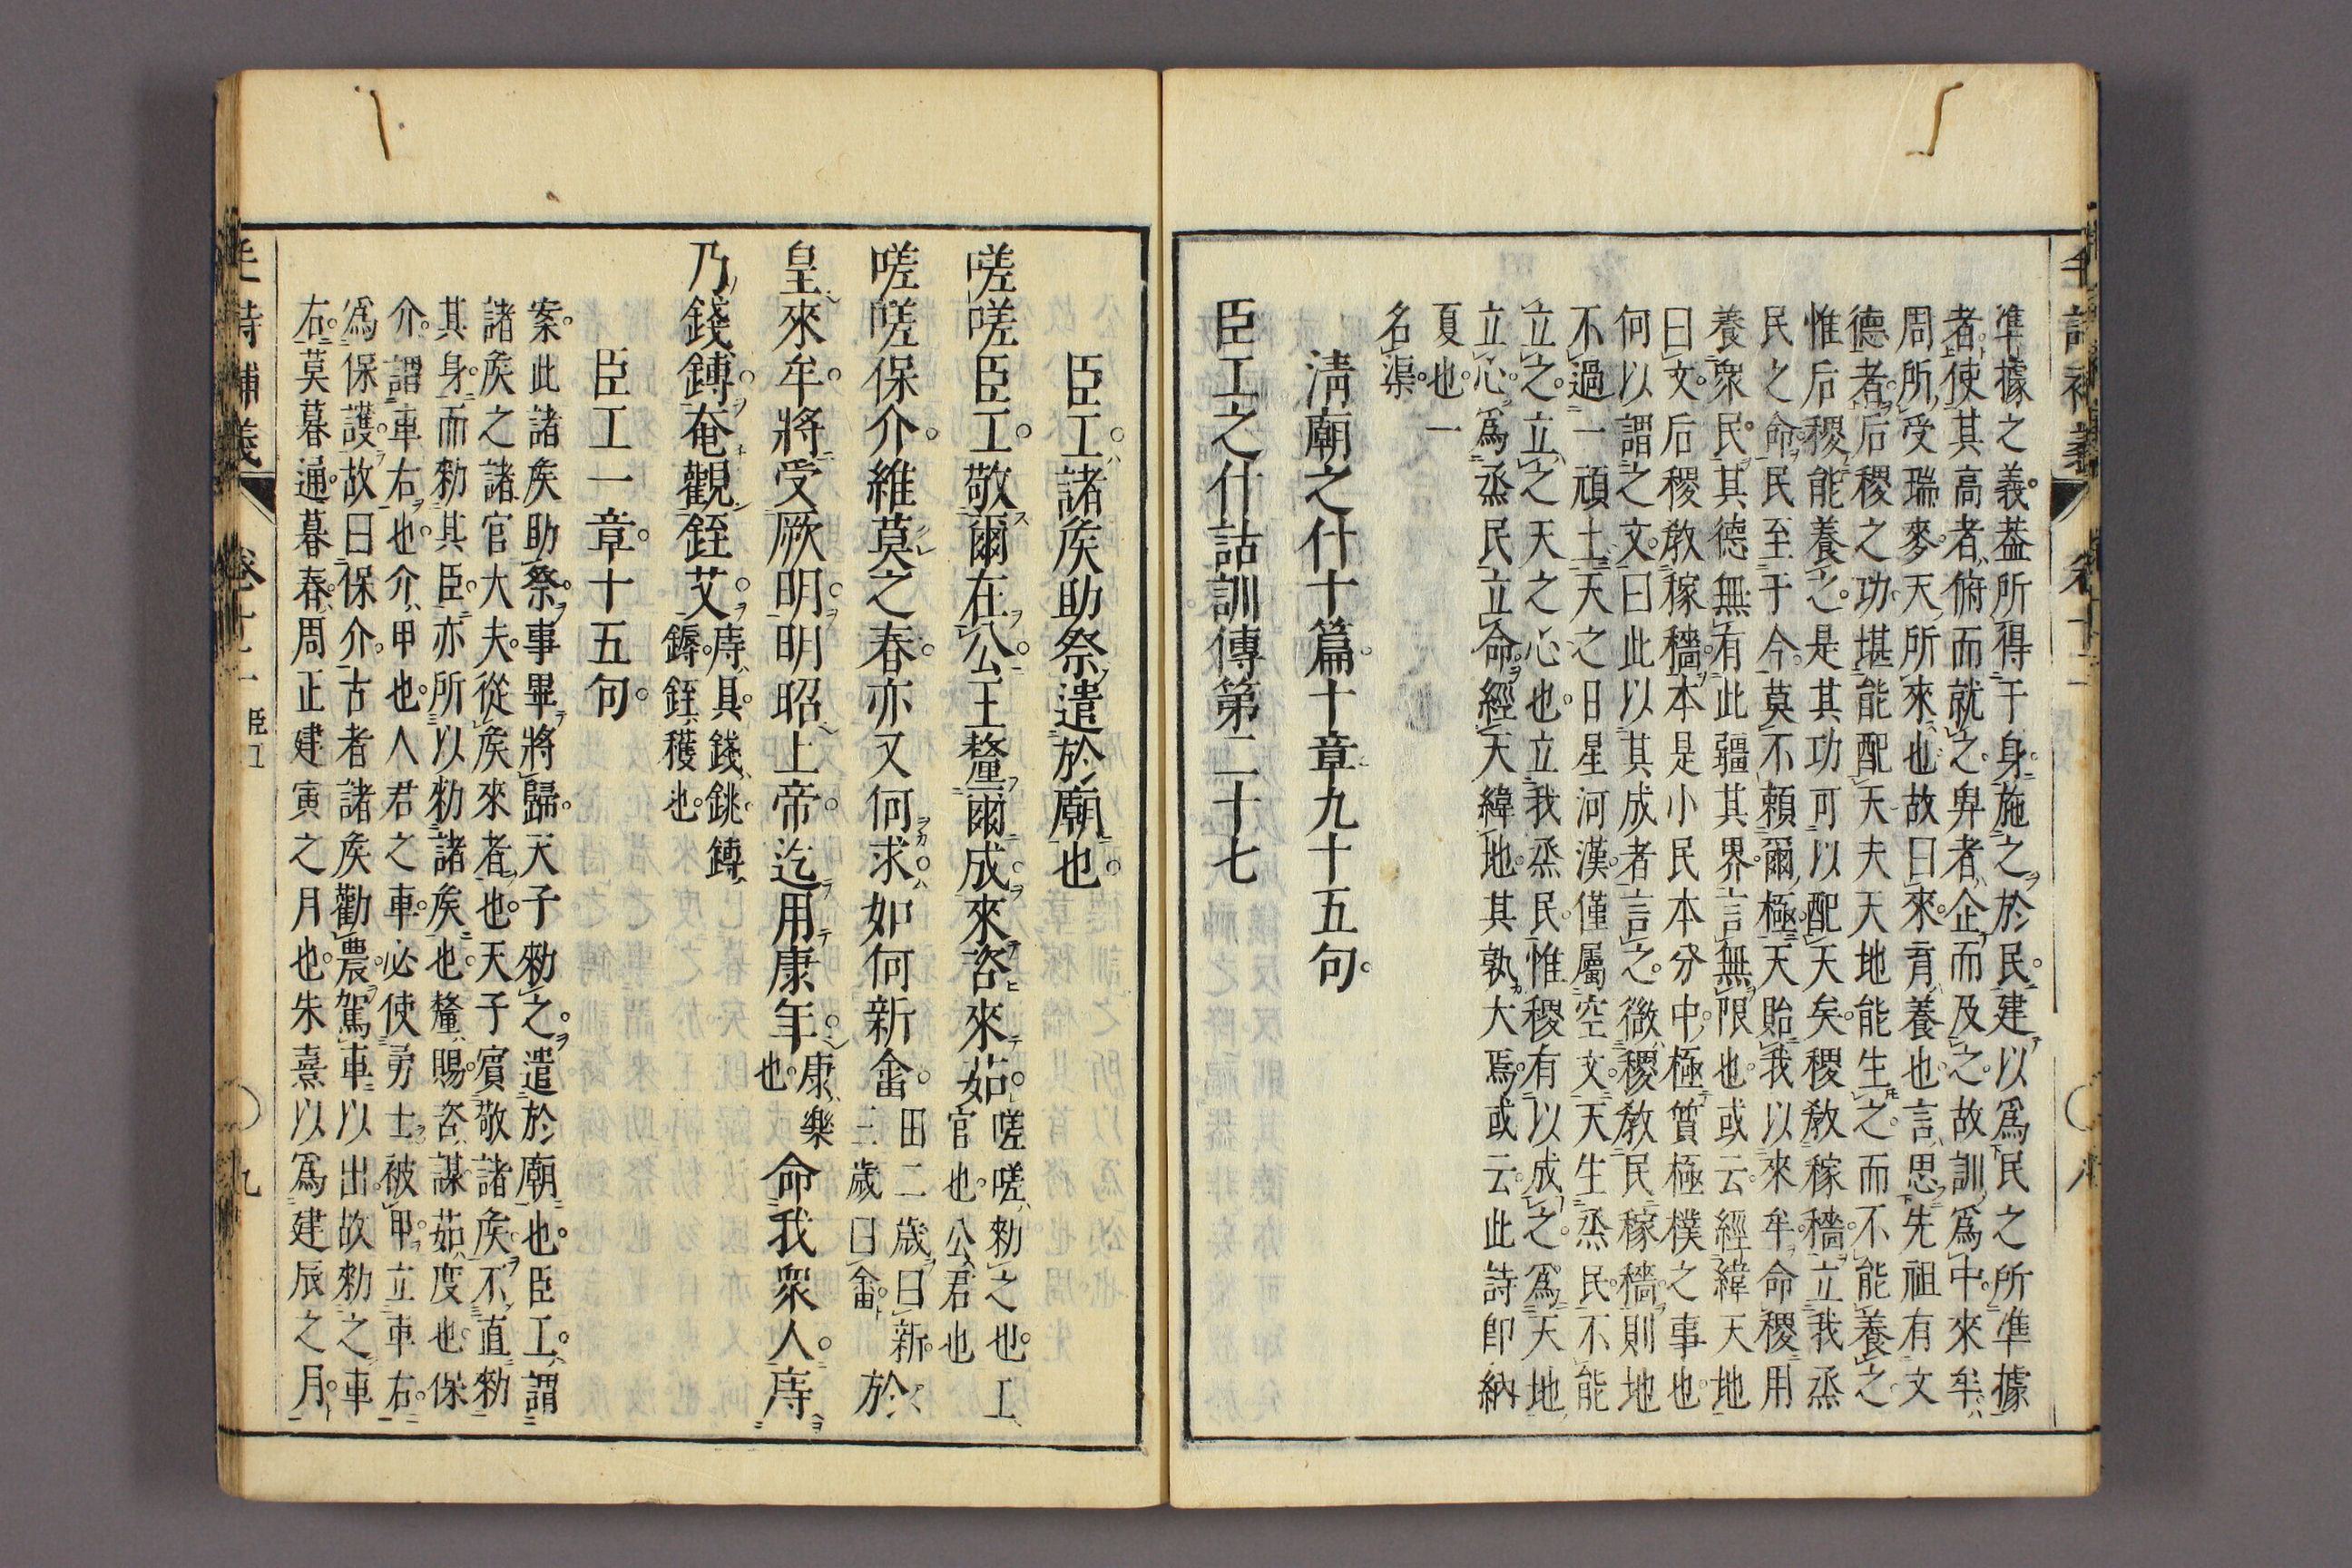 準據之義。蓋所得于身。施之於民。建以爲民之所準據
者。使其高者俯而就之。卑者企而及之。故訓爲中。來牟
周所受瑞麥。天所來也。故曰來。育養也。言思先祖有文
德者。后稷之功。堪能配天。夫天地能生之。而不能養之
惟后稷能養之。是其功可以配天矣。稷敎稼穡。立我烝
民之命。民至于今。莫不賴爾極。天貽我以來牟。命稷用
養衆民。其德無有此疆其界。言無限也。或云。經緯天地
曰文。后稷敎稼穡。本是小民本分中。極質極樸之事也
何以謂之文。曰此以其成者言之。微稷敎民稼穡。則地
不過一頑土。天之日星河漢。僅屬空文。天生烝民。不能
立之。立之天之心也。立我烝民。惟稷有以成之。爲天地
立心。爲烝民立命。經天緯地。其孰大焉。或云。此詩卽納
夏也。一
名渠。
淸廟之什十篇。十章九十五句。
臣工之什詁訓傳第二十七
臣工。諸矦助祭遣於廟也。
嗟嗟臣工。敬爾在公。王釐爾成。來咨來茹。嗟嗟勑之也。工官也。公君也
嗟嗟保介。維莫之春。亦又何求。如何新畬。田二歲曰新。三歲曰畬。於
皇來牟。將受厥明。明昭上帝。迄用康年。康樂也。命我衆人。庤
乃錢鎛。奄觀銍艾。庤具。錢銚。鎛鎒。銍穫也。
臣工一章十五句。
案。此諸矦助祭。事畢將歸。天子勑之。遣於廟也。臣工。謂
諸矦之諸官大夫。從矦來者也。天子賓敬諸矦。不直勑
其身。而勑其臣。亦所以勑諸矦也。釐賜。咨謀。茹度也。保
介。謂車右也。介甲也。人君之車。必使勇士被甲。立車右。
爲保護。故曰保介。古者諸矦勸農。駕車以出。故勑之車
右。莫暮通。暮春。周正建寅之月也。朱熹以爲建辰之月。